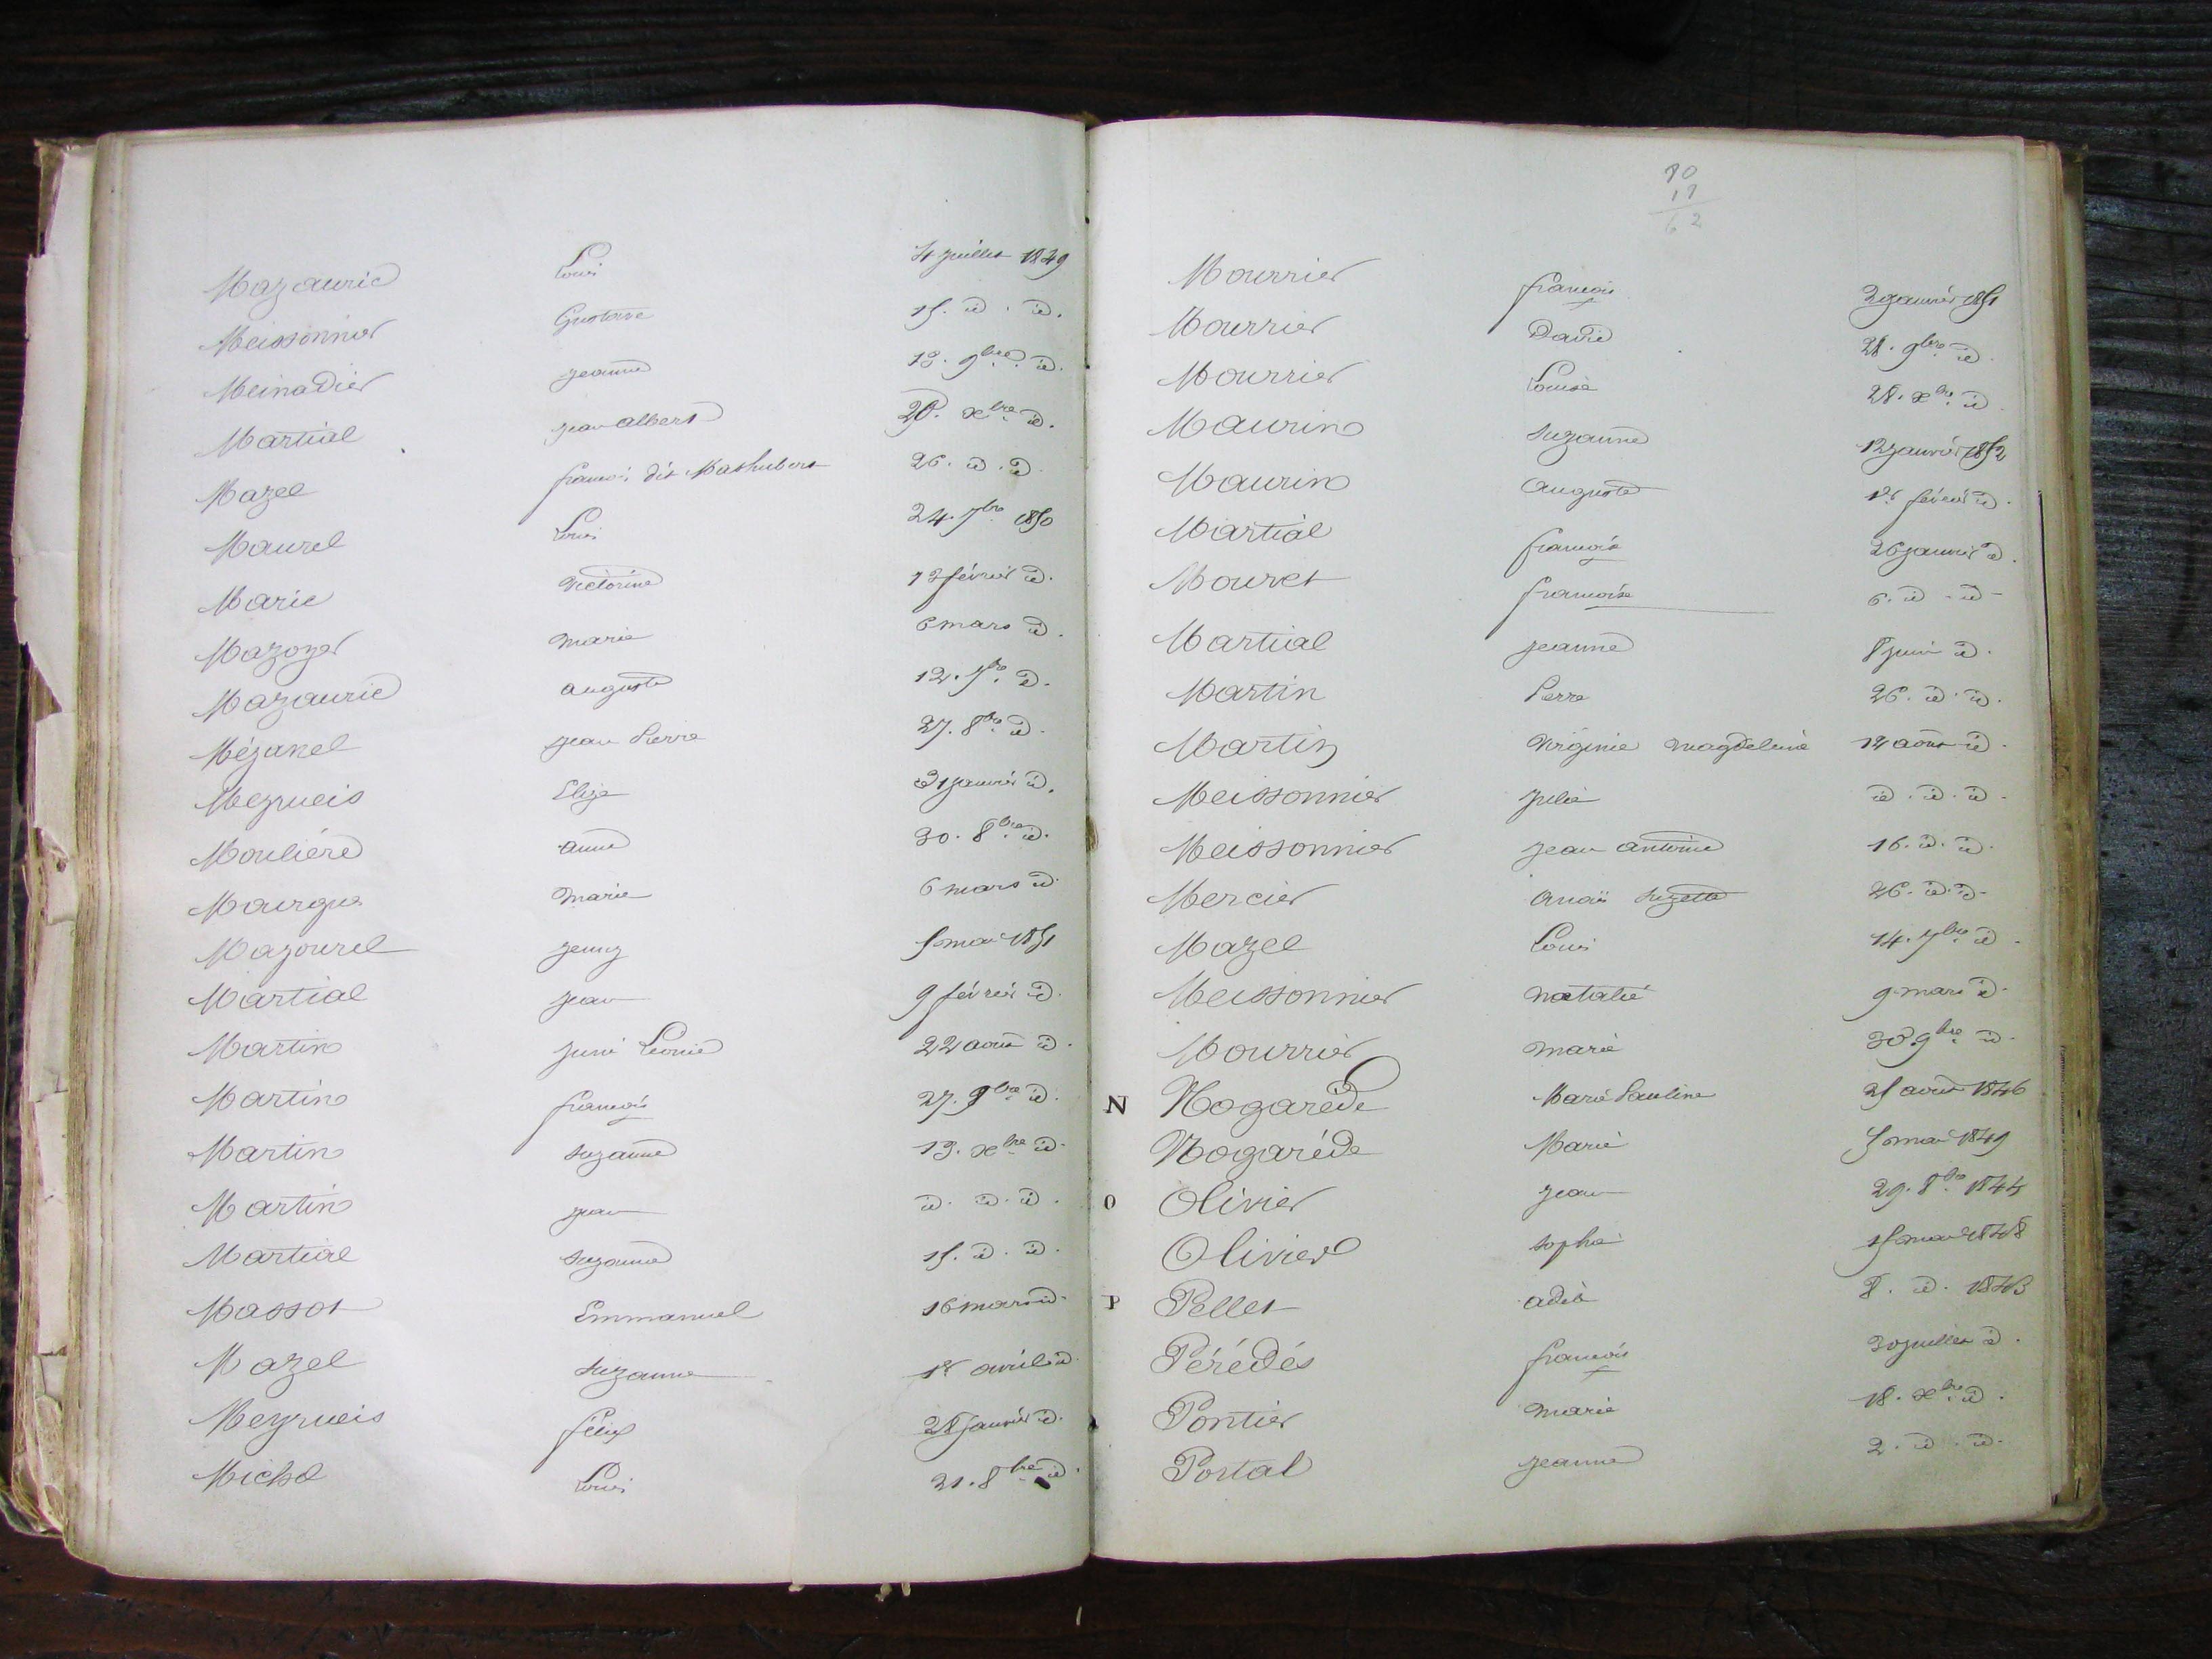 Mazauric Louis 4 juillet 1849
Meissonnier Gustave 15. id. id.
Meinadier jeanne 13. 9bre id.
Martial jean albert 20. xbre id.
Mazel françois dit 26. id. id.
Maurel Louis 24. 7bre 1850
Marie Victorine 13 février id.
Mazoyer marie 6 mars id.
Mazauric auguste 12. 7bre id.
Mézanel jean Pierre 27. 8bre id.
Meyrueis Eliza 31 janvier id.
Moulière anne 30. 8bre id.
Mourgue marie 6 mars id.
Mazourel jenny 5 mai 1851
Martial jean 9 février id.
Martin Léonie 22 août id.
Martin françois 27. 9bre id.
Martin suzanne 13. xbre id.
Martin jean id. id. id.
Martial suzanne 15. id. id.
Massot Emmanuel 16 mars id.
Mazel suzanne 1er avril id.
Meyrueis félix 28 janvier id.
Michel Louis 21. 8bre id.
80
18
62
Mourrier françois janvier 1851
Mourrier David 28. 9bre id.
Mourrier Louise 28. xbre id.
Maurin suzanne 12 janvier 1852
Maurin auguste 1er février id.
Martial françois 26 janvier id.
Mouret françoise 6. id. id.
Martial jeanne 8 juin id.
Martin Pierre 26. id. id.
Martin Virginie magdeleine 12 août id.
Meissonnier julie id. id. id.
Meissonnier jean antoine 16. id. id.
Mercier anaïs suzette 26. id. id.
Mazel Louis 14. 7bre id.
Meissonnier natalie 9 mars id.
Mourrier marie 30. 9bre id.
N Nogarède Marie Pauline 25 août 1846
Nogarède Marie 5 mai 1849
O Olivier jean 29. 8bre 1844
Olivier sophie 15 mai 1848
P Pellet adèle 8. id. 1843
Pérédès françois 30 juillet id.
Pontier marie 18. xbre id.
Portal jeanne 2. id. id.